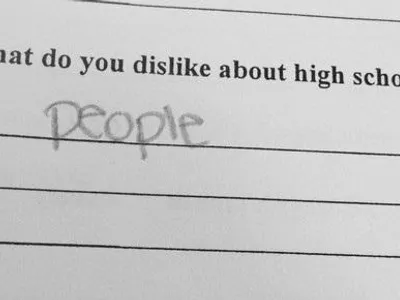 hat do you dislike about high scho
people